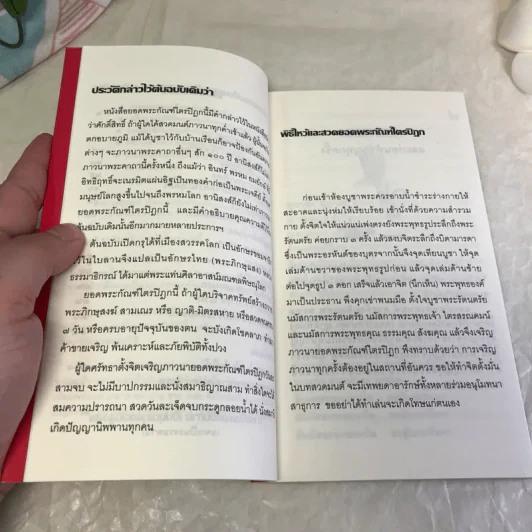 ประวัติกล่าวไว้ต้นฉบับเดิมว่า
หนังสือยอดพระกัณฑ์ไตรปิฎกนี้มีคำกล่าวไว้ในหนังสือ
ว่าศักดิ์สิทธิ์ ถ้าผู้ใดได้สวดมนต์ภาวนาทุกค่ำเช้าแล้ว
ตกอบายภูมิ แม้ได้บูชาไว้กับบ้านเรือนก็อาจป้องกันอันตราย
ต่างๆ จะภาวนาพระคาถาอื่นๆ สัก ๑๐๐ ปี อานิสงส์
ภาวนาพระคาถานี้ครั้งหนึ่ง ถึงแม้ว่า อินทร์ พรหม ยมยักษ์
อิทธิฤทธิ์จะเนรมิตแผ่นอิฐเป็นทองคำก่อเป็นพระเจดีย์
มนุษย์โลกสูงขึ้นไปจนถึงพรหมโลก อานิสงส์ก็ยังไม่เท่า
ยอดพระกัณฑ์ไตรปิฎกนี้ และมีคำอธิบายคุณความดี
ต้นฉบับเดิมนั้นอีกมากมายหลายประการฯ
ต้นฉบับเปิดกรุได้ที่เมืองสวรรคโลก เป็นอักษรขอม
ไว้ในใบลานจึงแปลเป็นอักษรไทย (พระภิกษุแสง)
ธรรมาธิกรณ์ ได้มาแต่พระแท่นศิลาอาสน์มณฑลพิษณุโลก
ยอดพระกัณฑ์ไตรปิฎกนี้ ถ้าผู้ใดบริจาคทรัพย์สร้าง
พระภิกษุสงฆ์ สามเณร หรือ ญาติ-มิตรสหาย หรือสวด
๗ วัน หรือครบอายุปัจจุบันของตน จะบังเกิดโชคลาภ
ค้าขายเจริญ พ้นเคราะห์และภัยพิบัติทั้งปวง
ผู้ใดศรัทธาตั้งจิตเจริญภาวนายอดพระกัณฑ์ไตรปิฎก
สามจบ จะไม่มีบาปกรรมและนั่งสมาธิญาณสาม ทำสิ่งใด
สมความปรารถนา สวดวันละเจ็ดจบกระดูกลอยน้ำได้
เกิดปัญญานิพพานทุกคน
พิธีไหว้และสวดยอดพระกัณฑ์ไตรปิฎก
ก่อนเข้าห้องบูชาพระควรอาบน้ำชำระร่างกายให้
สะอาดและนุ่งห่มให้เรียบร้อย เข้านั่งที่ด้วยความสำรวม
กาย ตั้งจิตใจให้แน่วแน่เพ่งตรงยังพระพุทธรูประลึกถึงพระ
รัตนตรัย ค่อยกราบ ๓ ครั้ง แล้วสงบจิตระลึกถึงบิดามารดา
ซึ่งเป็นพระอรหันต์ของบุตรจากนั้นจึงจุดเทียนบูชา ให้จุด
เล่มด้านขวาของพระพุทธรูปก่อน แล้วจุดเล่มด้านซ้าย
ต่อไปจุดธูป ๓ ดอก เสร็จแล้วเอาจิต (นึกเห็น) พระพุทธองค์
มาเป็นประธาน พึงคุกเข่าพนมมือ ตั้งใจบูชาพระรัตนตรัย
นมัสการพระรัตนตรัย นมัสการพระพุทธเจ้า ไตรสรณคมน์
และนมัสการพระพุทธคุณ ธรรมคุณ สังฆคุณ แล้วจึงเจริญ
ภาวนายอดพระกัณฑ์ไตรปิฎก พึงทราบด้วยว่า การเจริญ
ภาวนาทุกครั้งต้องอยู่ในสถานที่อันควร ขอให้ทำจิตตั้งมั่น
ในบทสวดมนต์ จะมีเทพยดาอารักษ์ทั้งหลายร่วมอนุโมทนา
สาธุการ ขออย่าได้ทำเล่นจะเกิดโทษแก่ตนเอง